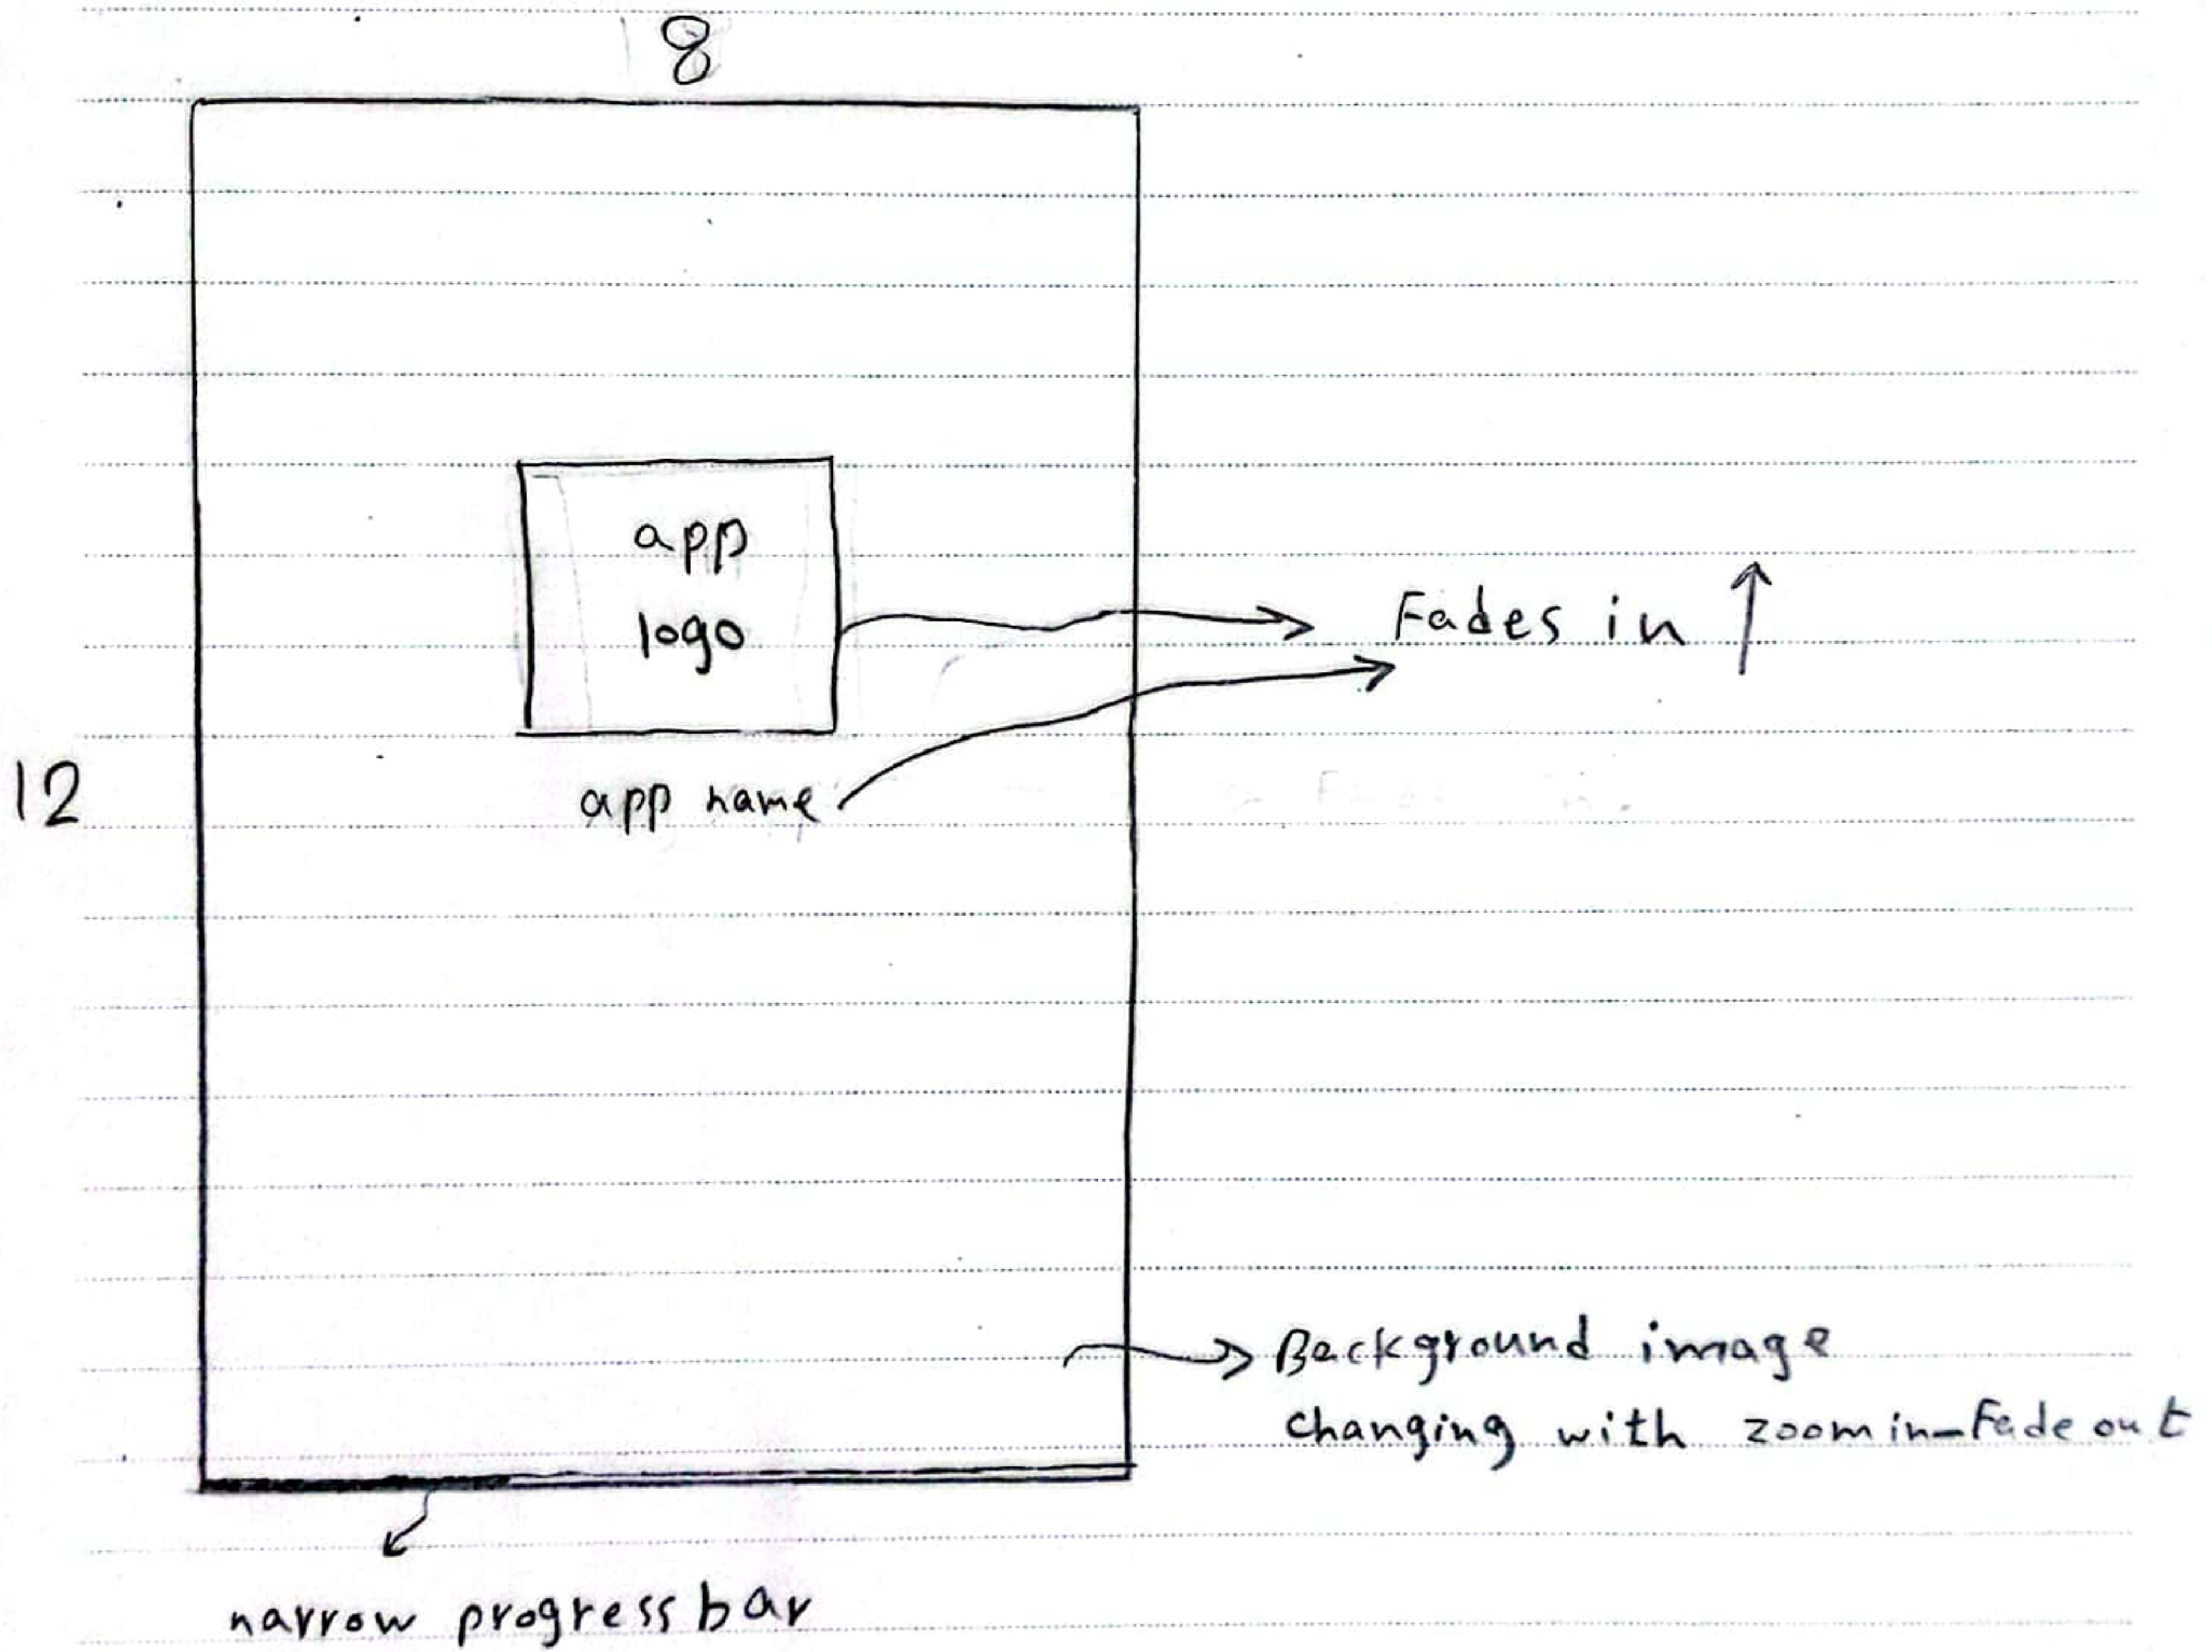 8
app
logo
Fades in ↑
12
app name
Background image
changing with zoom in-fade out
narrow progress bar